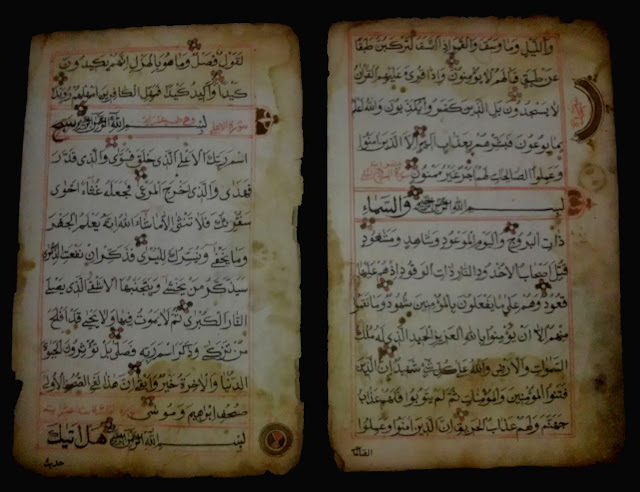 والليل وما وسق والقمر اذا اتسق لتركبن طبقا
عن طبق فما لهم لا يؤمنون واذا قرئ عليهم القران
لا يسجدون بل الذين كفروا يكذبون والله اعلم
بما يوعون فبشرهم بعذاب اليم الا الذين امنوا
وعملوا الصالحات لهم اجر غير ممنون سورة البروج
بسم الله الرحمن الرحيم والسماء
ذات البروج واليوم الموعود وشاهد ومشهود
قتل اصحاب الاخدود النار ذات الوقود اذ هم عليها
قعود وهم على ما يفعلون بالمؤمنين شهود وما نقموا
منهم الا ان يؤمنوا بالله العزيز الحميد الذي له ملك
السموات والارض والله على كل شئ شهيد ان الذين
فتنوا المؤمنين والمؤمنات ثم لم يتوبوا فلهم عذاب
جهنم ولهم عذاب الحريق ان الذين امنوا وعملوا
الصالحات
لقول فصل وما هو بالهزل انهم يكيدون
كيدا واكيد كيدا فمهل الكافرين امهلهم رويدا
سورة الاعلى
بسم الله الرحمن الرحيم سبح
اسم ربك الاعلى الذي خلق فسوى والذي قدر
فهدى والذي اخرج المرعى فجعله غثاء احوى
سنقرئك فلا تنسى الا ما شاء الله انه يعلم الجهر
وما يخفى ونيسرك لليسرى فذكر ان نفعت الذكرى
سيذكر من يخشى ويتجنبها الاشقى الذي يصلى
النار الكبرى ثم لا يموت فيها ولا يحيى قد افلح
من تزكى وذكر اسم ربه فصلى بل تؤثرون الحيوة
الدنيا والاخرة خير وابقى ان هذا لفي الصحف الاولى
صحف ابرهيم وموسى
بسم الله الرحمن الرحيم هل اتيك
حديث